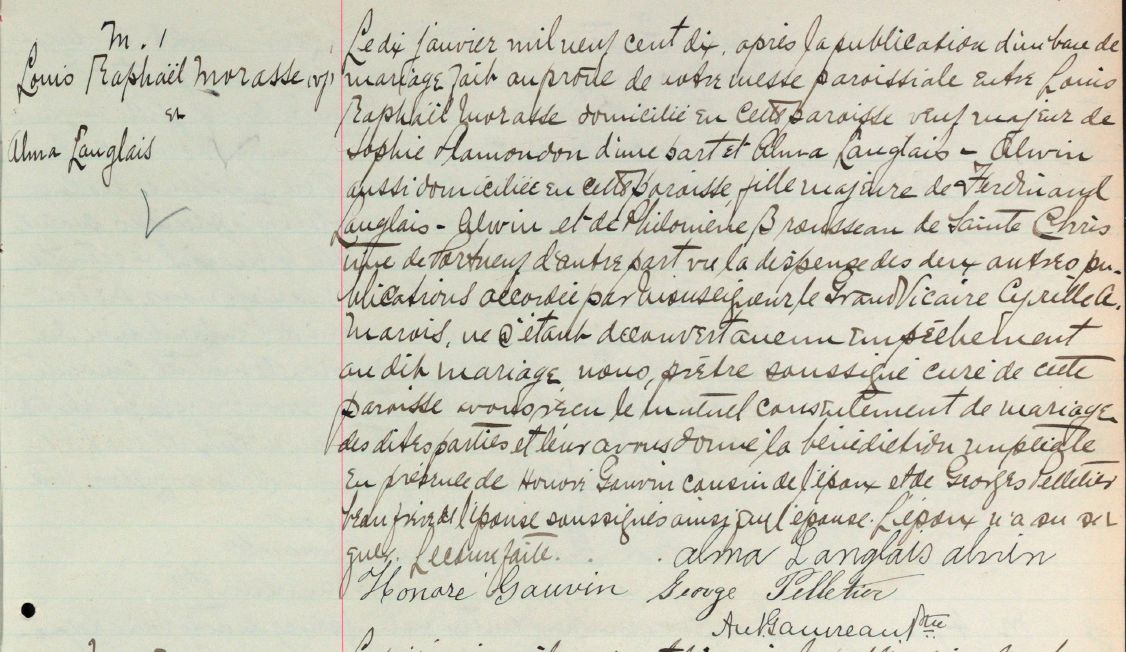 M. 1
Louis Raphaël Morasse
et
Alma Langlais
Le dix janvier mil neuf cent dix, après la publication d'un banc de
mariage fait au prône de notre messe paroissiale entre Louis
Raphaël Morasse domicilié en cette paroisse veuf majeur de
Sophie Plamondon d'une part et Alma Langlais - Alwin
aussi domiciliée en cette paroisse, fille majeure de Ferdinand
Langlais - Alwin et de Philomène Brousseau de Sainte Chris
tine de Portneuf d'autre part vu la dispense des deux autres pu-
blications accordée par Monseigneur le Grand Vicaire Cyrille A.
Marois, ne s'étant découvert aucun empêchement
au dit mariage nous, prêtre soussigné curé de cette
paroisse avons reçu le mutuel consentement de mariage
des dites parties et leur avons donné la bénédiction nuptiale
en présence de Honoré Gauvin cousin de l'époux et de Georges Pelletier
beau frère de l'épouse soussignés ainsi que l'épouse. L'époux n'a su si
gner. Lecture faite.
alma Langlais alvin
Honoré Gauvin George Pelletier
Gauvreau Ptre